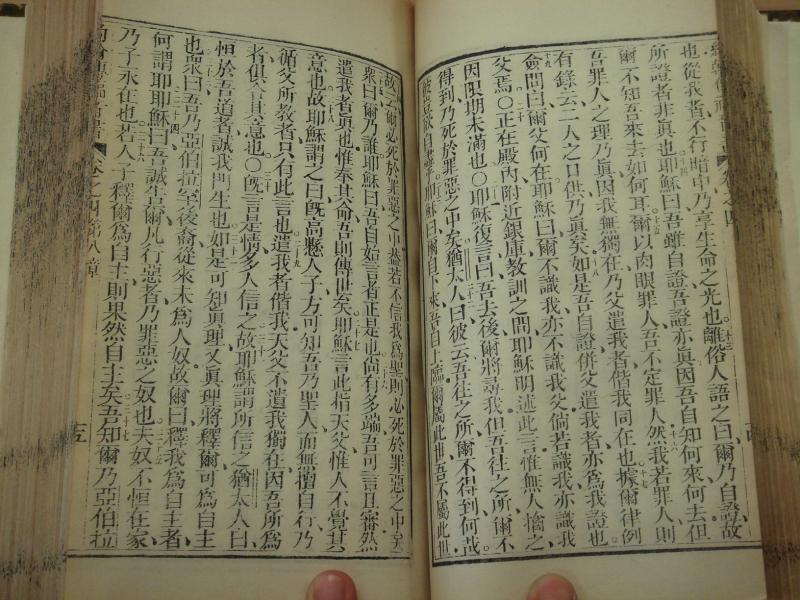 卷之四
也從我者、不行暗中乃享生命之光也離俗人語之曰爾乃自證、故
所證者非真也耶穌曰吾雖自證吾證亦真因吾自知何來何去但
爾不知吾來去如何耳爾以肉眼罪人吾不定罪人然我若罪人則
吾罪人之理乃真因我無獨在乃父遣我者偕我同在也據爾律例
有錄云二人之口供乃真矣如是吾自證併父遣我者亦為我證也
僉問曰爾父何在耶穌曰爾不識我亦不識我父倘若識我亦識我
父焉〇正在殿內附近銀庫教訓之間耶穌明述此言惟無人擒之
因限期未滿也〇耶穌復言曰吾去後爾將尋我但吾往之所爾不
得到乃死於罪惡之中矣猶太人曰彼云吾往之所爾不得到何哉
欲自耶穌曰爾自下來吾自上臨爾屬此世吾不屬此世
故云爾必死於罪惡之中蓋若不信我為聖則必死於罪惡之中矣
衆曰爾乃誰耶穌曰吾自始言者正是也尚有多端吾可言且審然
遣我者真也惟奉其命吾則傳世矣耶穌言此指天父惟人不覺其
意也故耶穌謂之曰旣高懸人子方可知吾乃聖人而無擅自行乃
循父所教者只有此言也遣我者偕我天父不遺我獨在因吾所為
者俱合其意也〇旣言是情多人信之故耶穌謂所信之猶太人曰
恒於吾道者誠我門生也如是可知真理又真理將釋爾可為自主
也衆曰吾乃亞伯拉罕後裔從來未為人奴故爾曰釋我為自主者、
何謂耶耶穌曰吾誠告爾凡行惡者乃罪惡之奴也夫奴不恒在家
乃子永在也若人子釋爾為自主則果然自主矣吾知爾乃亞伯拉
卷之四第八章